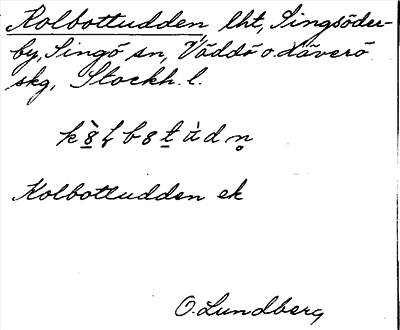 Kolbottudden lht, Singsöder-
by, Singö sn, Väddö o. Häverö
skg, Stockh. l.
Kolbottudden ek
O. Lundberg